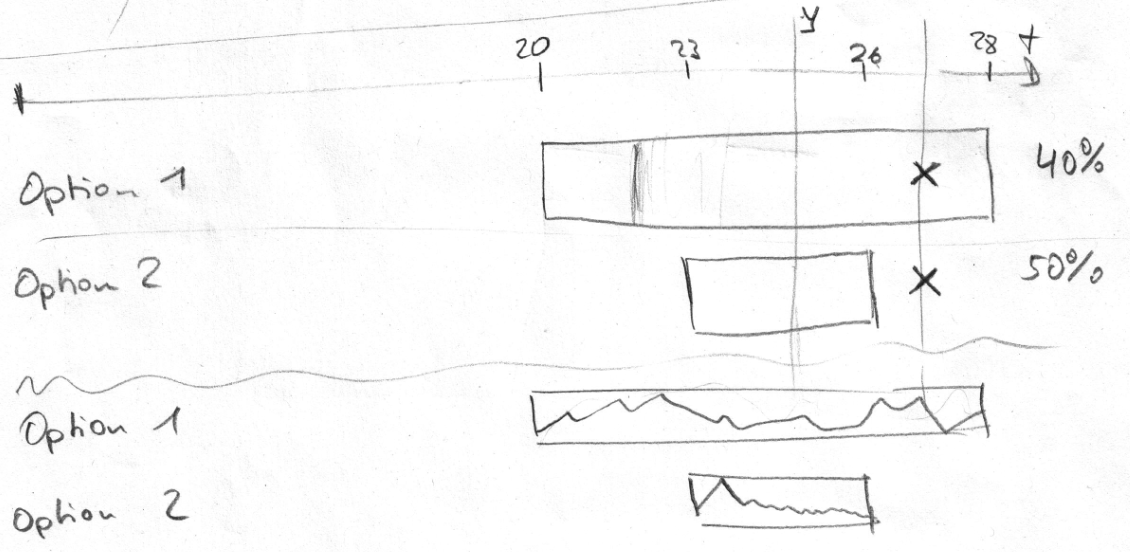 y
20 23 26 28 t
Option 1 40%
Option 2 50%
Option 1
Option 2